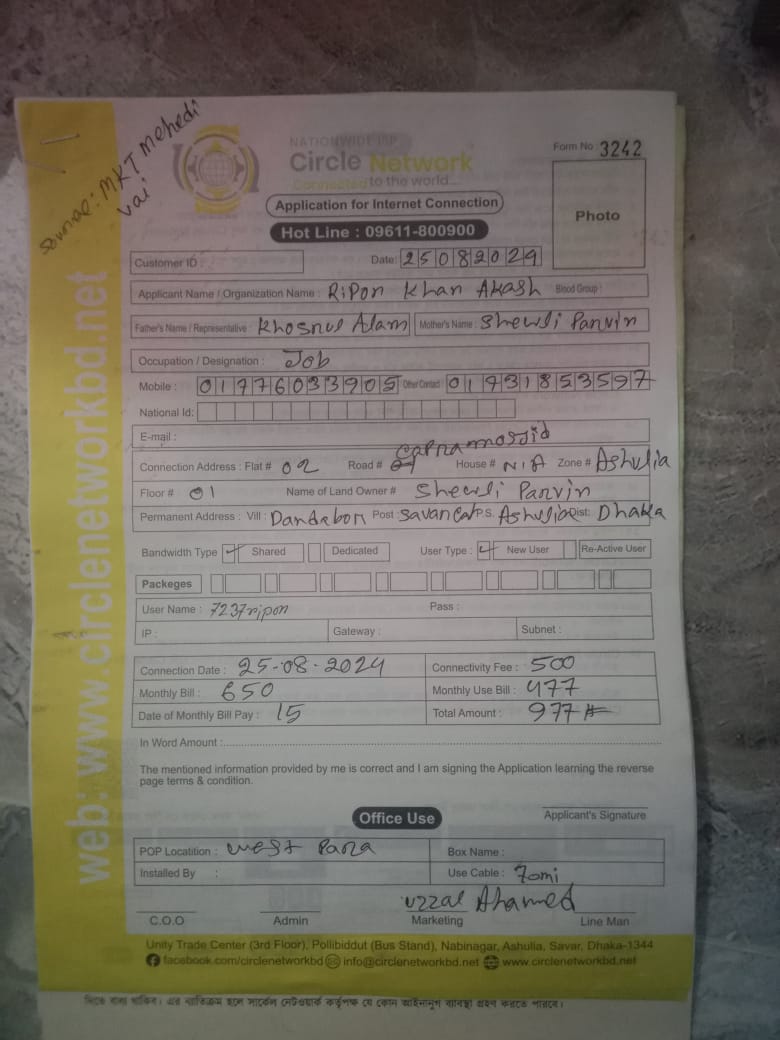 Source: MKT Mehedi
vai
NATIONWIDE ISP
Circle Network
Connected to the world...
Form No : 3242
Application for Internet Connection
Photo
Hot Line : 09611-800900
Customer ID :
Date: 25082024
Applicant Name / Organization Name : Ripon Khan Akash Blood Group :
Father's Name / Representative : Khosnul Alam Mother's Name : Shewli Parvin
Occupation / Designation : Job
Mobile : 01776033905 Other Contact 01731853597
National Id:
E-mail :
Connection Address : Flat # 02 Road # House # N/A Zone # Ashulia
Floor # 01 Name of Land Owner # Shewli Parvin
Permanent Address : Vill : Post P.S. Ashulia Dist: Dhaka
Bandwidth Type ✓ Shared Dedicated User Type : ✓ New User Re-Active User
Packeges
User Name : 7237ripon Pass :
IP : Gateway : Subnet :
Connection Date : 25-08-2024 Connectivity Fee : 500
Monthly Bill : 650 Monthly Use Bill : 477
Date of Monthly Bill Pay : 15 Total Amount : 977
In Word Amount :
The mentioned information provided by me is correct and I am signing the Application learning the reverse
page terms & condition.
Applicant's Signature
Office Use
POP Locatition : West Para Box Name :
Installed By : Use Cable : 70mi
Uzzal Ahamed
C.O.O Admin Marketing Line Man
Unity Trade Center (3rd Floor), Pollibiddut (Bus Stand), Nabinagar, Ashulia, Savar, Dhaka-1344
facebook.com/circlenetworkbd info@circlenetworkbd.net www.circlenetworkbd.net
web: www.circlenetworkbd.net
দিতে বাধ্য থাকিব। এর ব্যতিক্রম হলে সার্কেল নেটওয়ার্ক কর্তৃপক্ষ যে কোন আইনানুগ ব্যবস্থা গ্রহণ করতে পারবে।